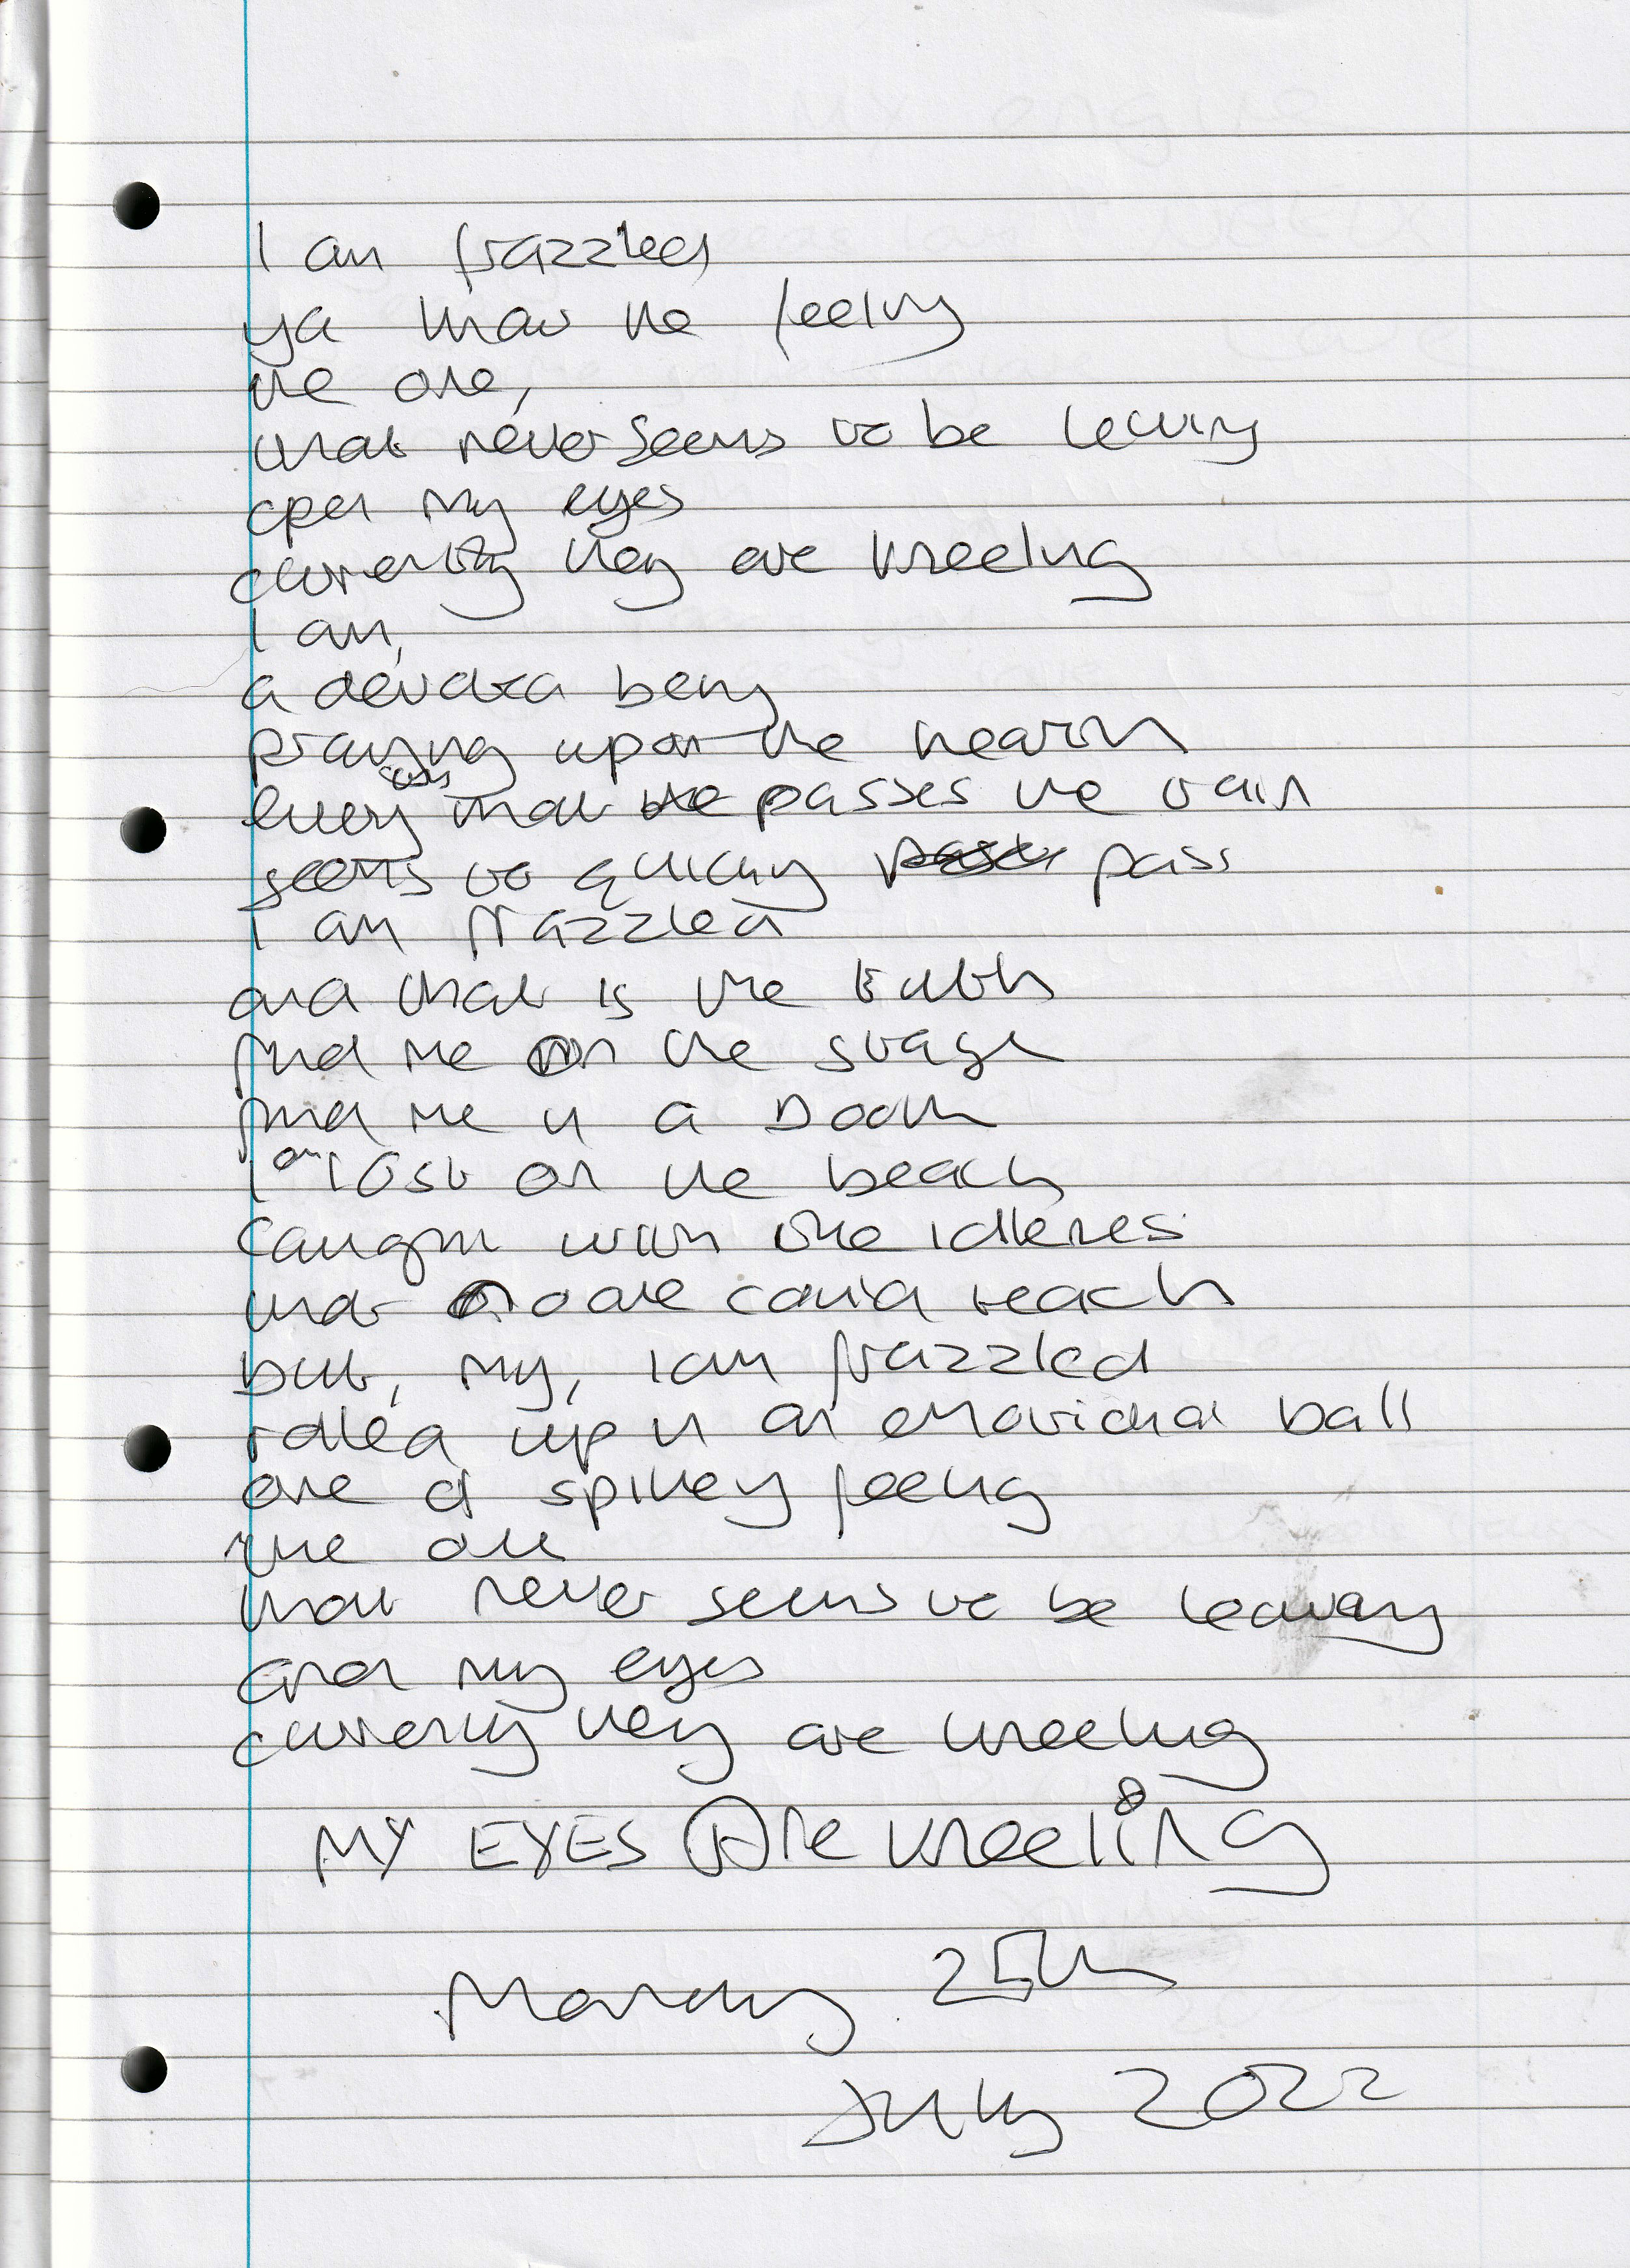 I am frazzled
ya know the feeling
the one,
that never seems to be leaving
open my eyes
currently they are kneeling
I am,
a devoted being
praying upon the hearth
every that passes the train
seems to quickly pass
I am frazzled
and that is the truth
find me on the stage
find me in a booth
I am lost on the beach
caught with the idlenes
that no one could reach
but, my, I am frazzled
rolled up in an emotional ball
one of spikey feeling
the one
that never seems to be leaving
and my eyes
currently they are kneeling
MY EYES Are kneeling
Monday 25th
July 2022